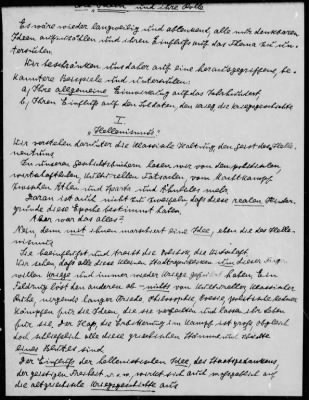 und ihre Rolle
Es wäre wieder langweilig und ablenkend, alle nur denkbaren
Ideen aufzuzählen und ihren Einfluss auf das Thema zu un-
tersuchen.
Wir beschränken uns daher auf eine herausgegriffene, be-
kanntere Beispiele und untersuchen:
a, Ihre allgemeine Einwirkung auf das Jahrhundert
b, Ihren Einfluß auf den Soldaten, den Krieg die Kriegsgeschichte
I.
"Hellenismus"
Wir verstehen darunter die klassische Haltung den Geist des Helle-
nentums
In unseren Geschichtsbüchern lesen wir von den politischen
wirtschaftlichen, kulturellen Tatsachen vom Machtkampf
zwischen Athen und Sparta und Ähnliches mehr
Daran ist auch nicht zu zweifeln, daß diese realen Hinter-
gründe diese Epoche bestimmt haben.
Aber war das alles?
Nein, denn mit ihnen marschiert eine Idee, eben die des Helle-
nismus
Sie beeinflußt und
Wir sehen daß alle diese kleinen Stadtrepubliken
Kriege und immer wieder Kriege geführt haben Ein
Feldzug löst den anderen ab - nichts von kultureller, klassischer
Ruhe, nirgends langer Friede, Philosophie, Poesie, politische Redner
kämpfen für die Ideen, die sie vertreten und lassen ihr Leben
für sie. Der Haß, die Erbitterung im Kampf ist groß obgleich
doch schließlich alle diese griechischen Stämme und Städte
eines Blutes sind
Der Einfluss der hellenistischen Idee, des Staatsgedankens,
der geistigen Freiheit u.s.w, wirkt sich auch maßgeblich auf
die altgriechische Kriegsgeschichte aus